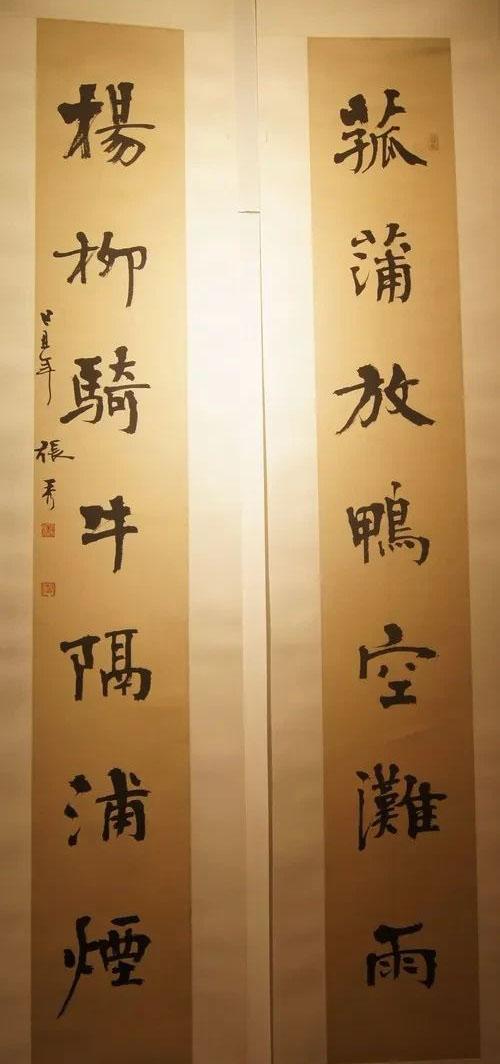 菰蒲放鴨空灘雨
楊柳騎牛隔浦煙
己丑年
張